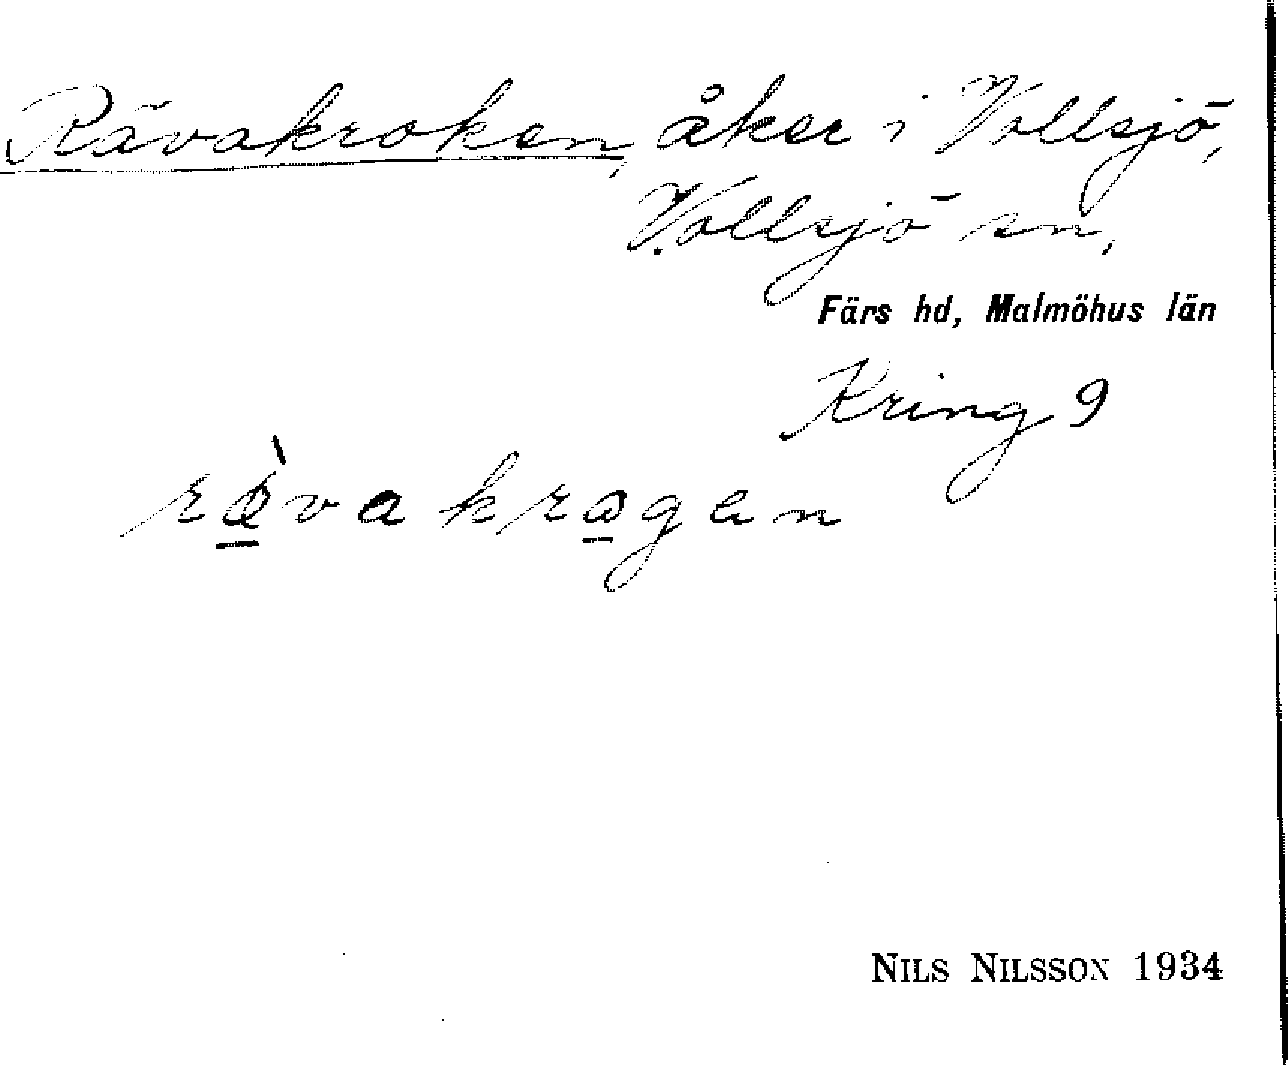 Rävakroken, åker i Vollsjö,
Vollsjö sn,
Färs hd, Malmöhus län
Kring 9
ræ̠̀vakrɷ̠gan
NILS NILSSON 1934